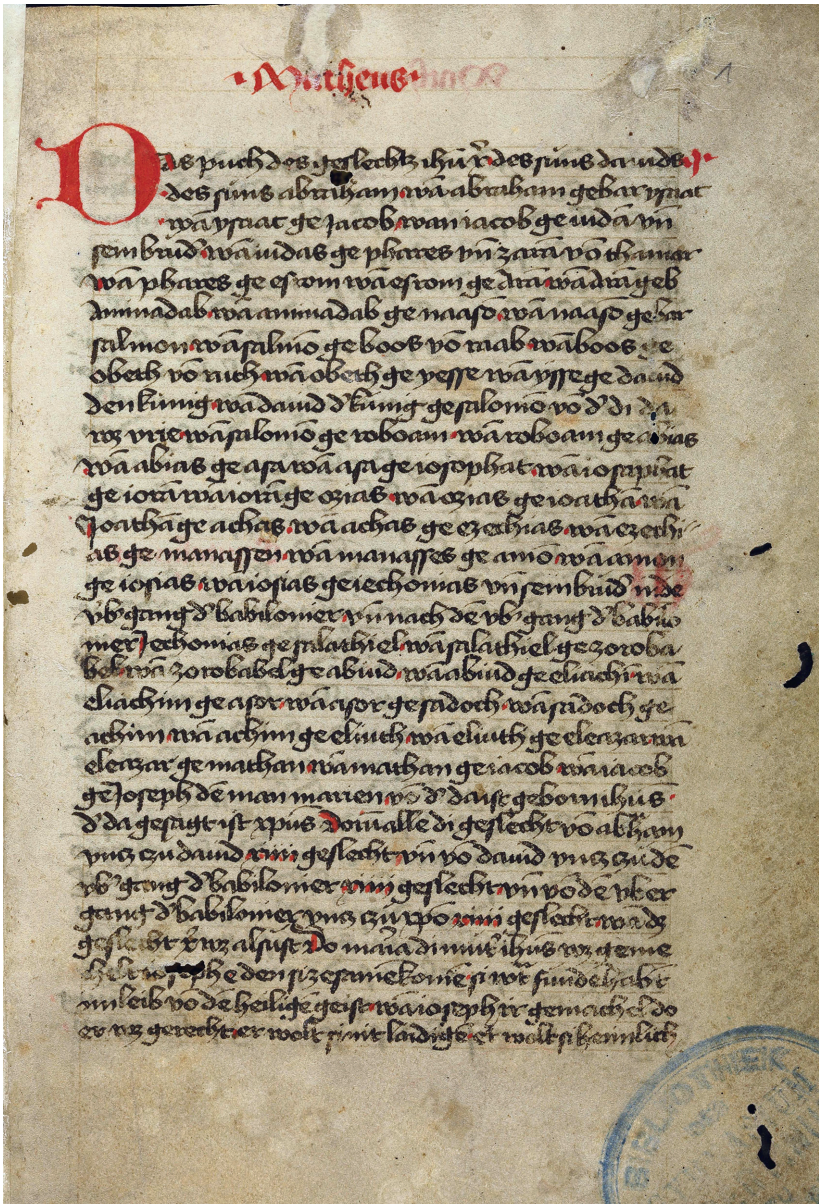 Matheus
1
Das puch des geslechtz ihū xp̄i des suns dauids
des suns abraham wā abraham gebar ysaac
wā ysaac ge Jacob wan iacob ge iudā vn̄
sein brud' wā iudas ge phares vn̄ zarā vō thamar
wā phares ge esrom wā esrom ge Arā wā Arā geb
Aminadab wā aminadab ge naasō wā naasō gebar
salmon wā salmō ge boos vō raab wā boos ge
obeth vō ruth wā obeth ge yesse wā ysse ge dauid
den kūnig wā dauid d' kūnig ge salomō vō d' di da
wz vrie wā salomō ge roboam wā roboam ge abias
wā abias ge asa wā asa ge iosophat wā iosaphat
ge iorā wā iorā ge ozias wā ozias ge ioathā wā
Joathā ge achas wā achas ge ezechias wā ezechi
as ge manassen wā manasses ge amō wā amon
ge iosias wā iosias ge iechonias vn̄ sein brud' in de
vb' gang d' babilonier vn̄ nach dē vb' gang d' babilo
nier Jechonias ge salathiel wā salathiel ge zoroba
bel wā zorobabel ge abiud wā abiud ge eliachī wā
eliachim ge asor wā asor ge sadoch wā sadoch ge
achim wā achim ge eliuth wā eliuth ge eleazar wā
eleazar ge mathan wā mathan ge iacob wā iacob
ge Joseph dē man marien vō d' da ist geborn ihūs
d' da gesagt ist xpūs Dorū alle di geslecht vō abħam
vncz czu dauid xiiii geslecht vn̄ vō dauid vncz czu dē
vb' gang d' babilonier xiiii geslecht vn̄ vō dē vber
gang d' babilonier vncz czu xpō xiiii geslecht wā dz
geslecht xp̄i wz alsust Do maria di mut' ihūs wz geme
helt iosephe den si zesame komē si wart funde habēt
im leib vō de heilige geist wā ioseph ir gemachel do
er wz gerecht er wolt si nit laidigē er wolt si heimlich
BIBLIOTHEK